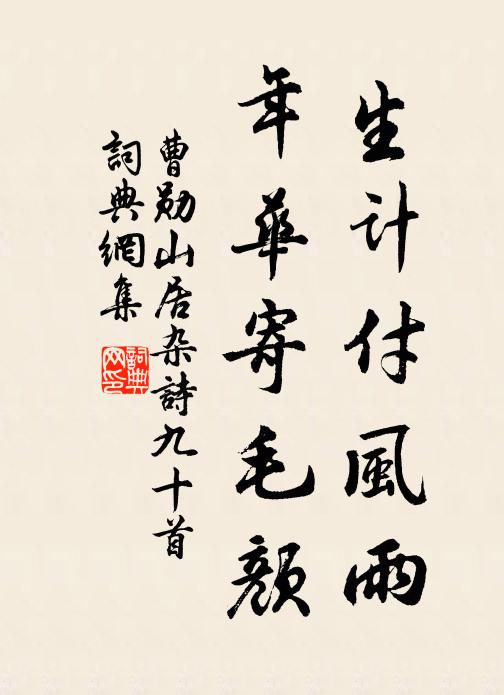 生计付風雨
年華寄毛颜
曹勋山居杂詩九十首
詞典網集
詞典网印